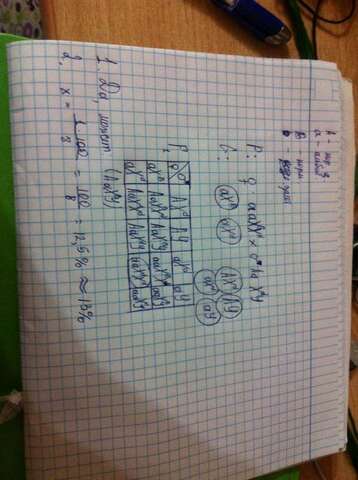 A - нор.
a - альбин
B - норм.
P: ♀ aaXᴮXᵇ × ♂ Aa XᴮY
G: aXᴮ aXᵇ AXᴮ AY aXᴮ aY
F₁
♀ ♂ AXᴮ AY aXᴮ aY
aXᴮ AaXᴮXᴮ AaXᴮY aaXᴮXᴮ aaXᴮY
aXᵇ AaXᴮXᵇ AaXᵇY aaXᴮXᵇ aaXᵇY
1. Да, может (AaXᵇY)
2. x = 1·100/8 = 100/8 = 12,5% ≈ 13%